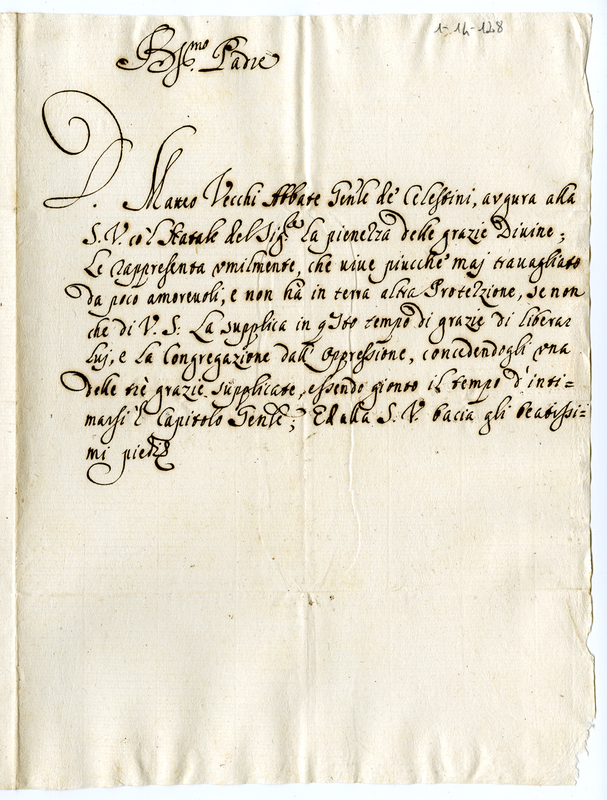 1-14-128
B.mo Padre
D. Matteo Vecchi Abbate Gen'le de' Celestini, augura alla
S. V. co'l Natale del Sig.re la pienezza delle grazie Divine;
Le rappresenta vmilmente, che uiue piucche maj trauagliato
da poco amoreuoli, e non hà in terra altra Protezzione, se non
che di V. S. La supplica in q'sto tempo di grazie di liberar
luj, e la Congregazione dall' oppressione, concedendogli vna
delle trè grazie supplicate, essendo gionto il tempo d'inti=
marsi 'l Capitolo Gen'le; Ed alla S. V. bacia gli beatissi=
mi piedi